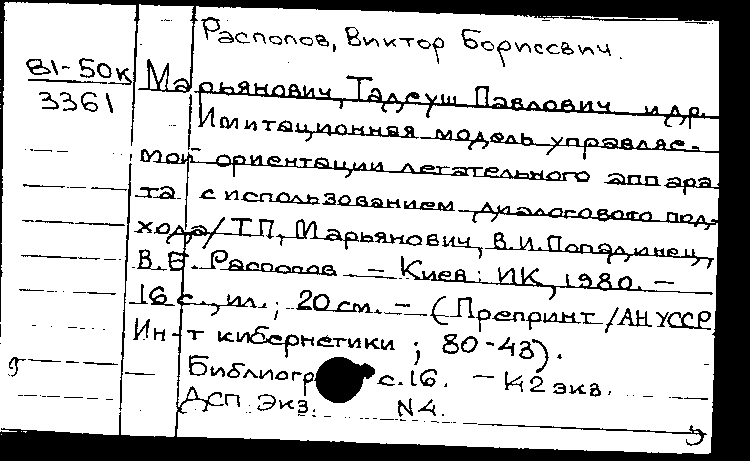 Распопов, Виктор Борисович.
81-50к
3361
Марьянович, Тадеуш Павлович и др.
Имитационная модель управляе-
мой ориентации летательного аппара-
та с использованием диалогового под-
хода/Т.П. Марьянович, В.И. Попадинец,
В.Б. Распопов. – Киев: ИК, 1980. –
16 с., ил.; 20 см. – (Препринт/АН УССР
Ин-т кибернетики; 80-43).
Библиогр с.16. – 142 экз.
ДСП Экз. N4.